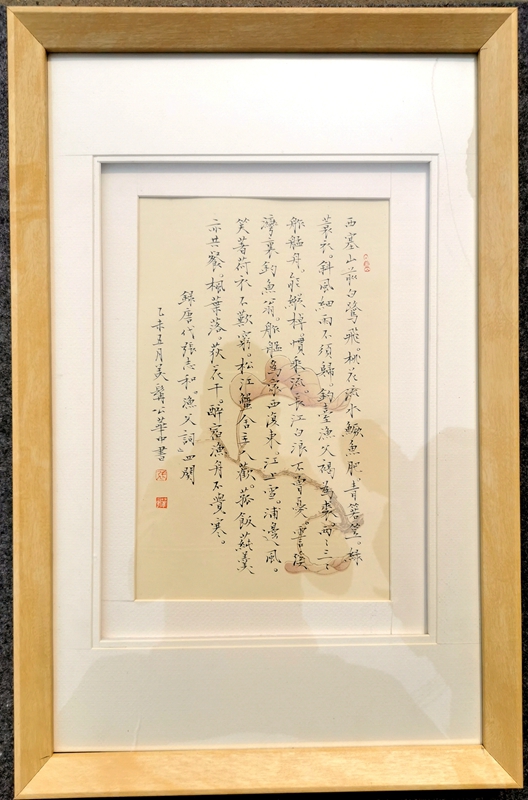 西塞山前白鹭飛。桃花流水鱖魚肥。青箬笠。緑
蓑衣。斜風細雨不須歸。釣臺漁父褐為裘。兩〻三〻
舴艋舟。能縱棹。慣乘流。長江白浪不曾憂。霅溪
灣裏釣魚翁。舴艋為家西復東。江上雪。浦邊風。
笑著荷衣不歎窮。松江蟹舍主人歡。菰飯蓴羹
亦共餐。楓葉落。荻花干。醉宿漁舟不覺寒。
録唐代張志和《漁父詞》四闋
乙未五月美髯公華中書